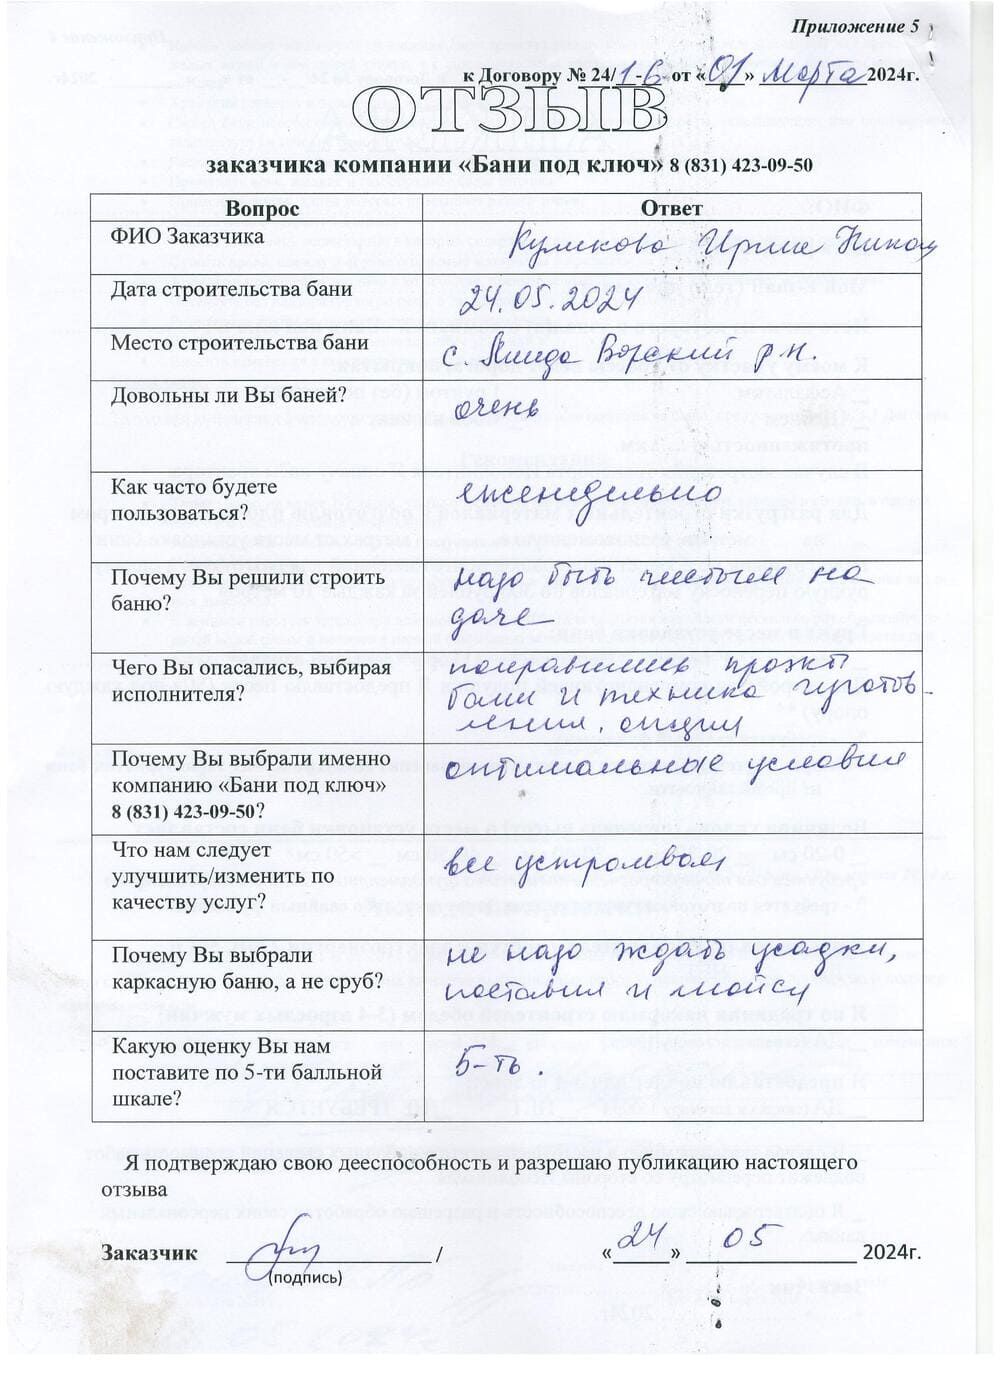 Приложение 5
к Договору № 24/1-Б от «01» марта 2024г.
ОТЗЫВ
заказчика компании «Бани под ключ» 8 (831) 423-09-50
Вопрос Ответ
ФИО Заказчика Куликова Ирина Никол
Дата строительства бани 24.05.2024
Место строительства бани с. Линда Борский р-н.
Довольны ли Вы баней? очень
Как часто будете
пользоваться?
еженедельно
Почему Вы решили строить
баню?
надо быть чистым на
даче
Чего Вы опасались, выбирая
исполнителя?
понравились проэкты
бани и техника
Почему Вы выбрали именно
компанию «Бани под ключ»
8 (831) 423-09-50?
оптимальные условия
Что нам следует
улучшить/изменить по
качеству услуг?
все устроило
Почему Вы выбрали
каркасную баню, а не сруб?
не надо ждать усадки,
поставил и мойся
Какую оценку Вы нам
поставите по 5-ти балльной
шкале?
5-ть.
Я подтверждаю свою дееспособность и разрешаю публикацию настоящего
отзыва
Заказчик / «24» 05 2024г.
(подпись)